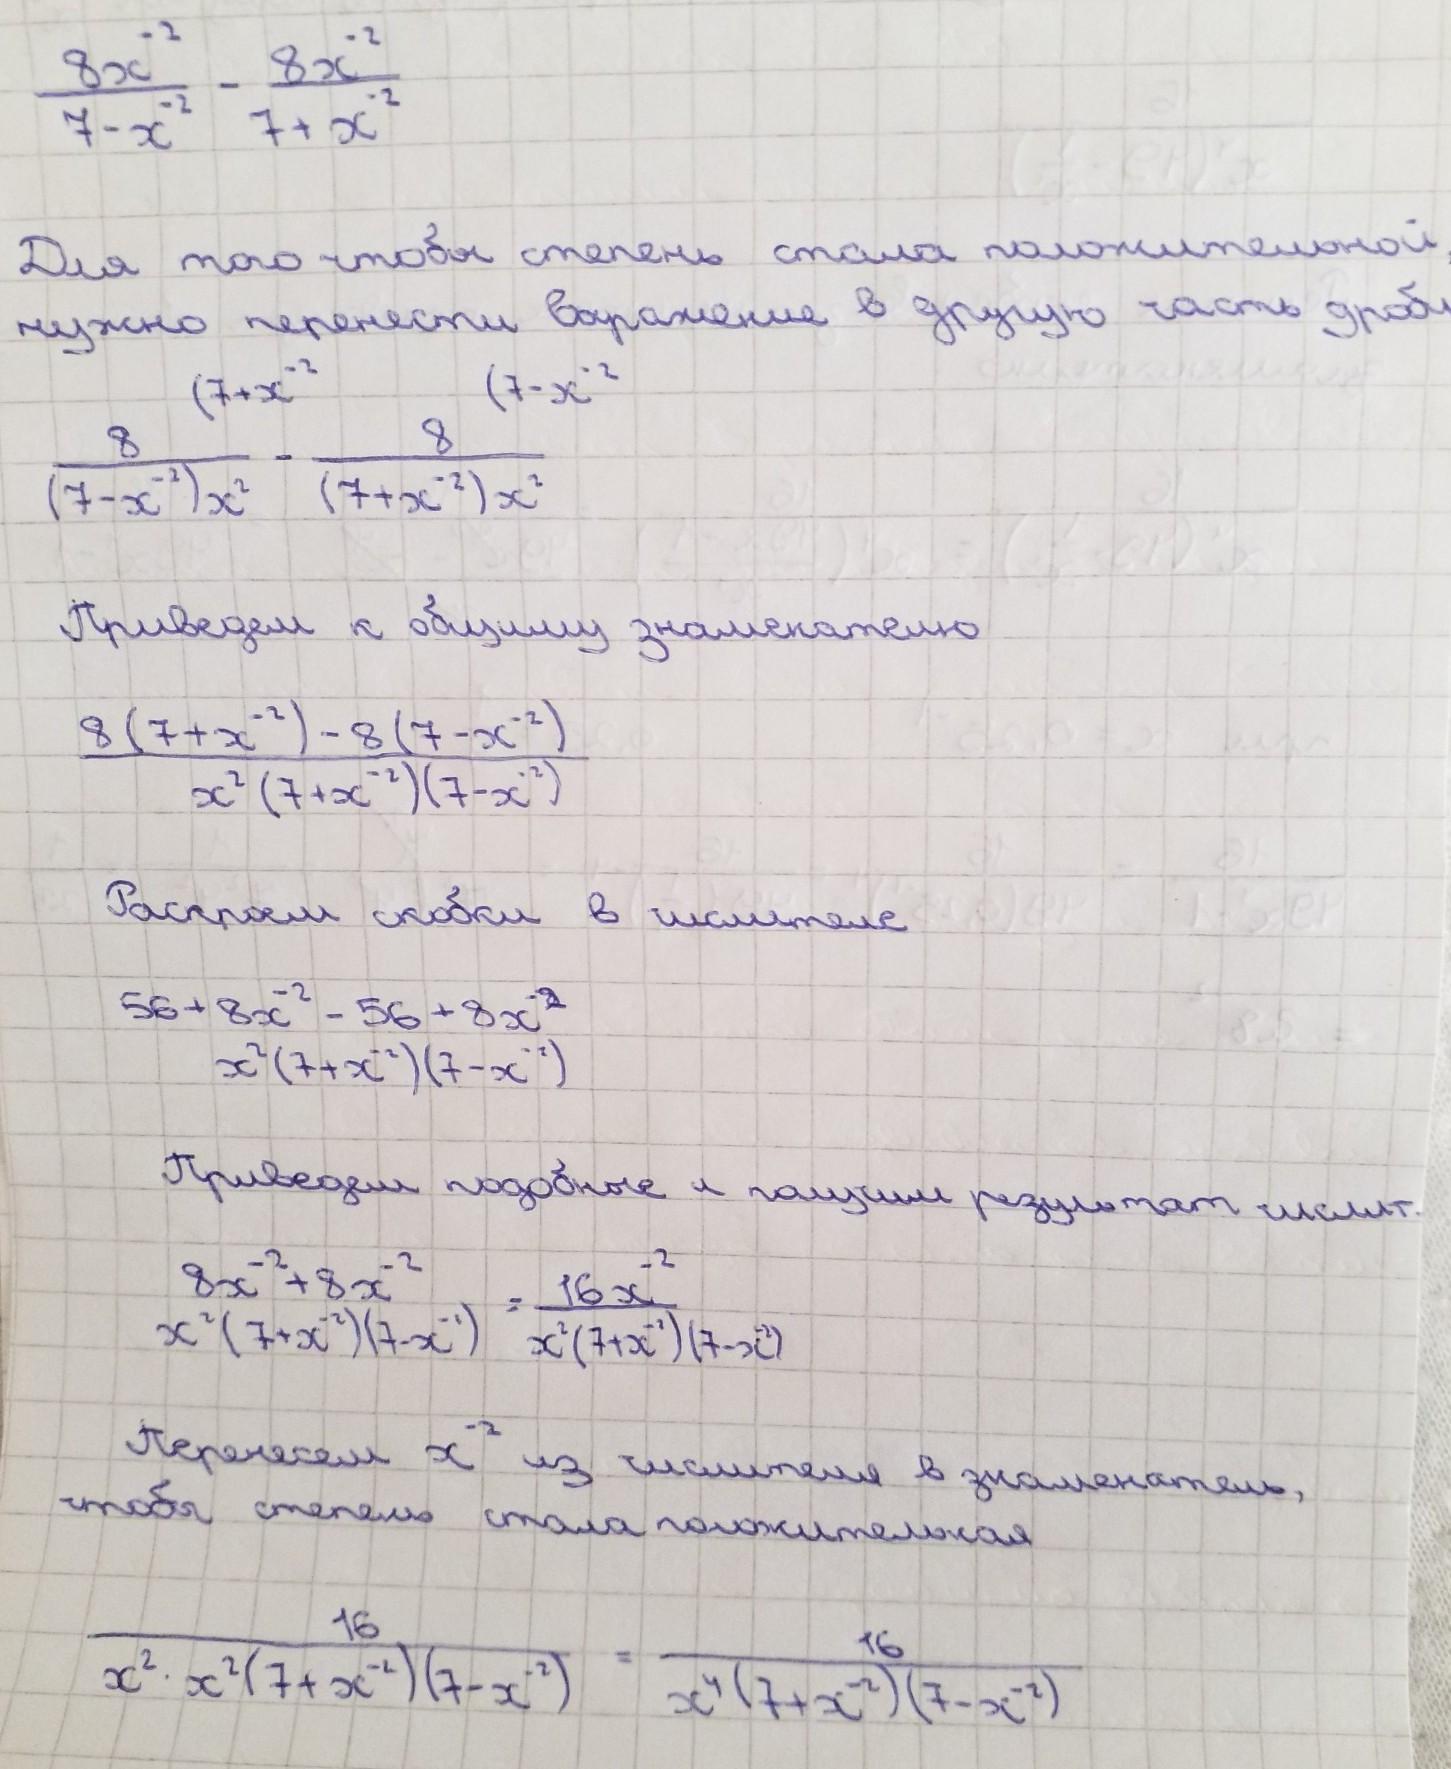 8x⁻² / (7-x⁻²) - 8x⁻² / (7+x⁻²)
Для того чтобы степень стала положительной,
нужно перенести выражение в другую часть дроби
(7+x⁻² (7-x⁻²
8 / (7-x⁻²)x² - 8 / (7+x⁻²)x²
Приведем к общему знаменателю
8(7+x⁻²)-8(7-x⁻²)
x²(7+x⁻²)(7-x⁻²)
Раскроем скобки в числителе
56+8x⁻²-56+8x⁻²
x²(7+x⁻²)(7-x⁻²)
Приведем подобные и получим результат числит.
8x⁻²+8x⁻² / x²(7+x⁻²)(7-x⁻²) = 16x⁻² / x²(7+x⁻²)(7-x⁻²)
Перенесем x⁻² из числителя в знаменатель,
чтобы степень стала положительная
16 / x²·x²(7+x⁻²)(7-x⁻²) = 16 / x⁴(7+x⁻²)(7-x⁻²)